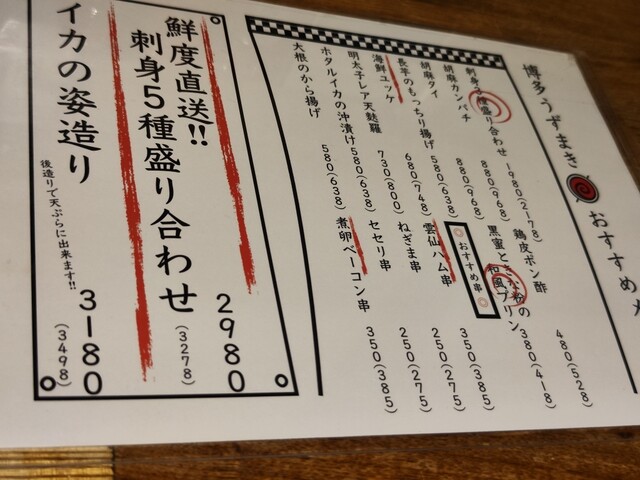 博多うずまき おすすめ
刺身3種盛り合わせ 1980(2178)
胡麻カンパチ 880(968)
胡麻タイ 880(968)
長芋のもっちり揚げ 580(638)
海鮮ユッケ 680(748)
明太子レア天麩羅 730(800)
ホタルイカの沖漬け 580(638)
大根のから揚げ 580(638)
鶏皮ポン酢 480(528)
黒蜜ときな粉の
和風プリン 380(418)
おすすめ串
雲仙ハム串 350(385)
ねぎま串 250(275)
セセリ串 250(275)
煮卵ベーコン串 350(385)
鮮度直送!!
刺身5種盛り合わせ 2980
(3278)
イカの姿造り 3180
後造りで天ぷらに出来ます!! (3498)